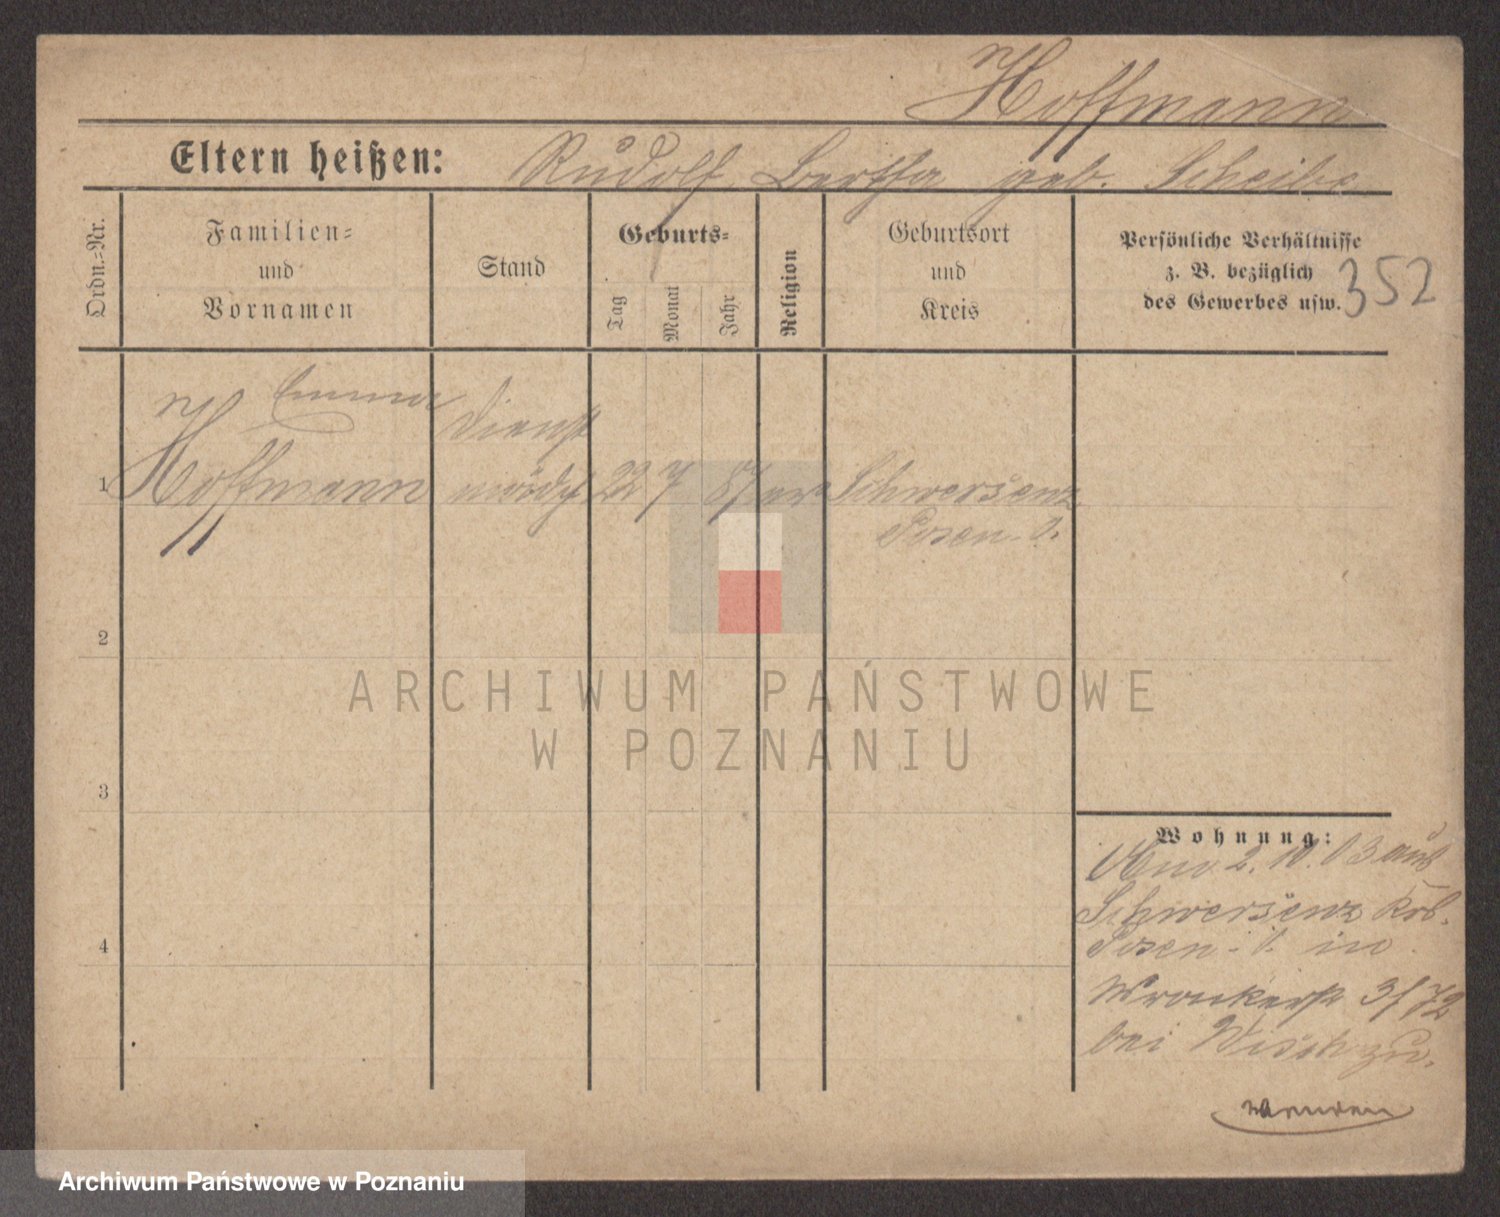 Hoffmann
Eltern heißen: Rudolf Bertha geb. Scheibe
Ordn.-Nr.
Familien-
und
Vornamen
Stand
Geburts-
Tag
Monat
Jahr
Religion
Geburtsort
und
Kreis
Persönliche Verhältnisse
z. B. bezüglich
des Gewerbes usw.
352
Emma Dienst
1 Hoffmann mädch 22 7 87 Schwersenz
Posen O.
2
ARCHIWUM PAŃSTWOWE
W POZNANIU
3
Wohnung:
2. 10. 03 aus
Schwersenz
Posen O. in
Wronkerst 3/72
bei zu.
4
wenden
Archiwum Państwowe w Poznaniu